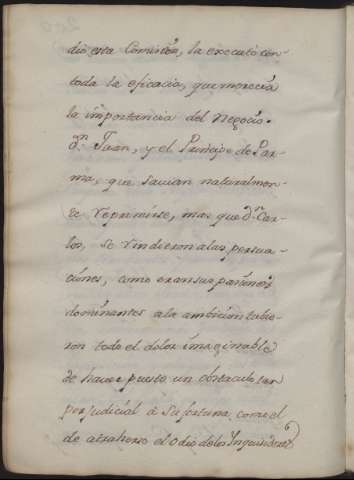 dio esta Comision, la executó con-
toda la eficacia, que merecia
la importancia del Negocio.
Dn. Juan, y el Principe de Par-
ma, que savian naturalmen-
te reprimirse, mas que Dn. Car-
los, se rindieron a las persua-
ciones, como eran sus pasiones
dominantes a la ambicion tubie-
ron todo el dolor imaginable
de haver puesto un obstaculo tan
perjudicial à su fortuna como el
de atraherse el odio de los Inquisidores